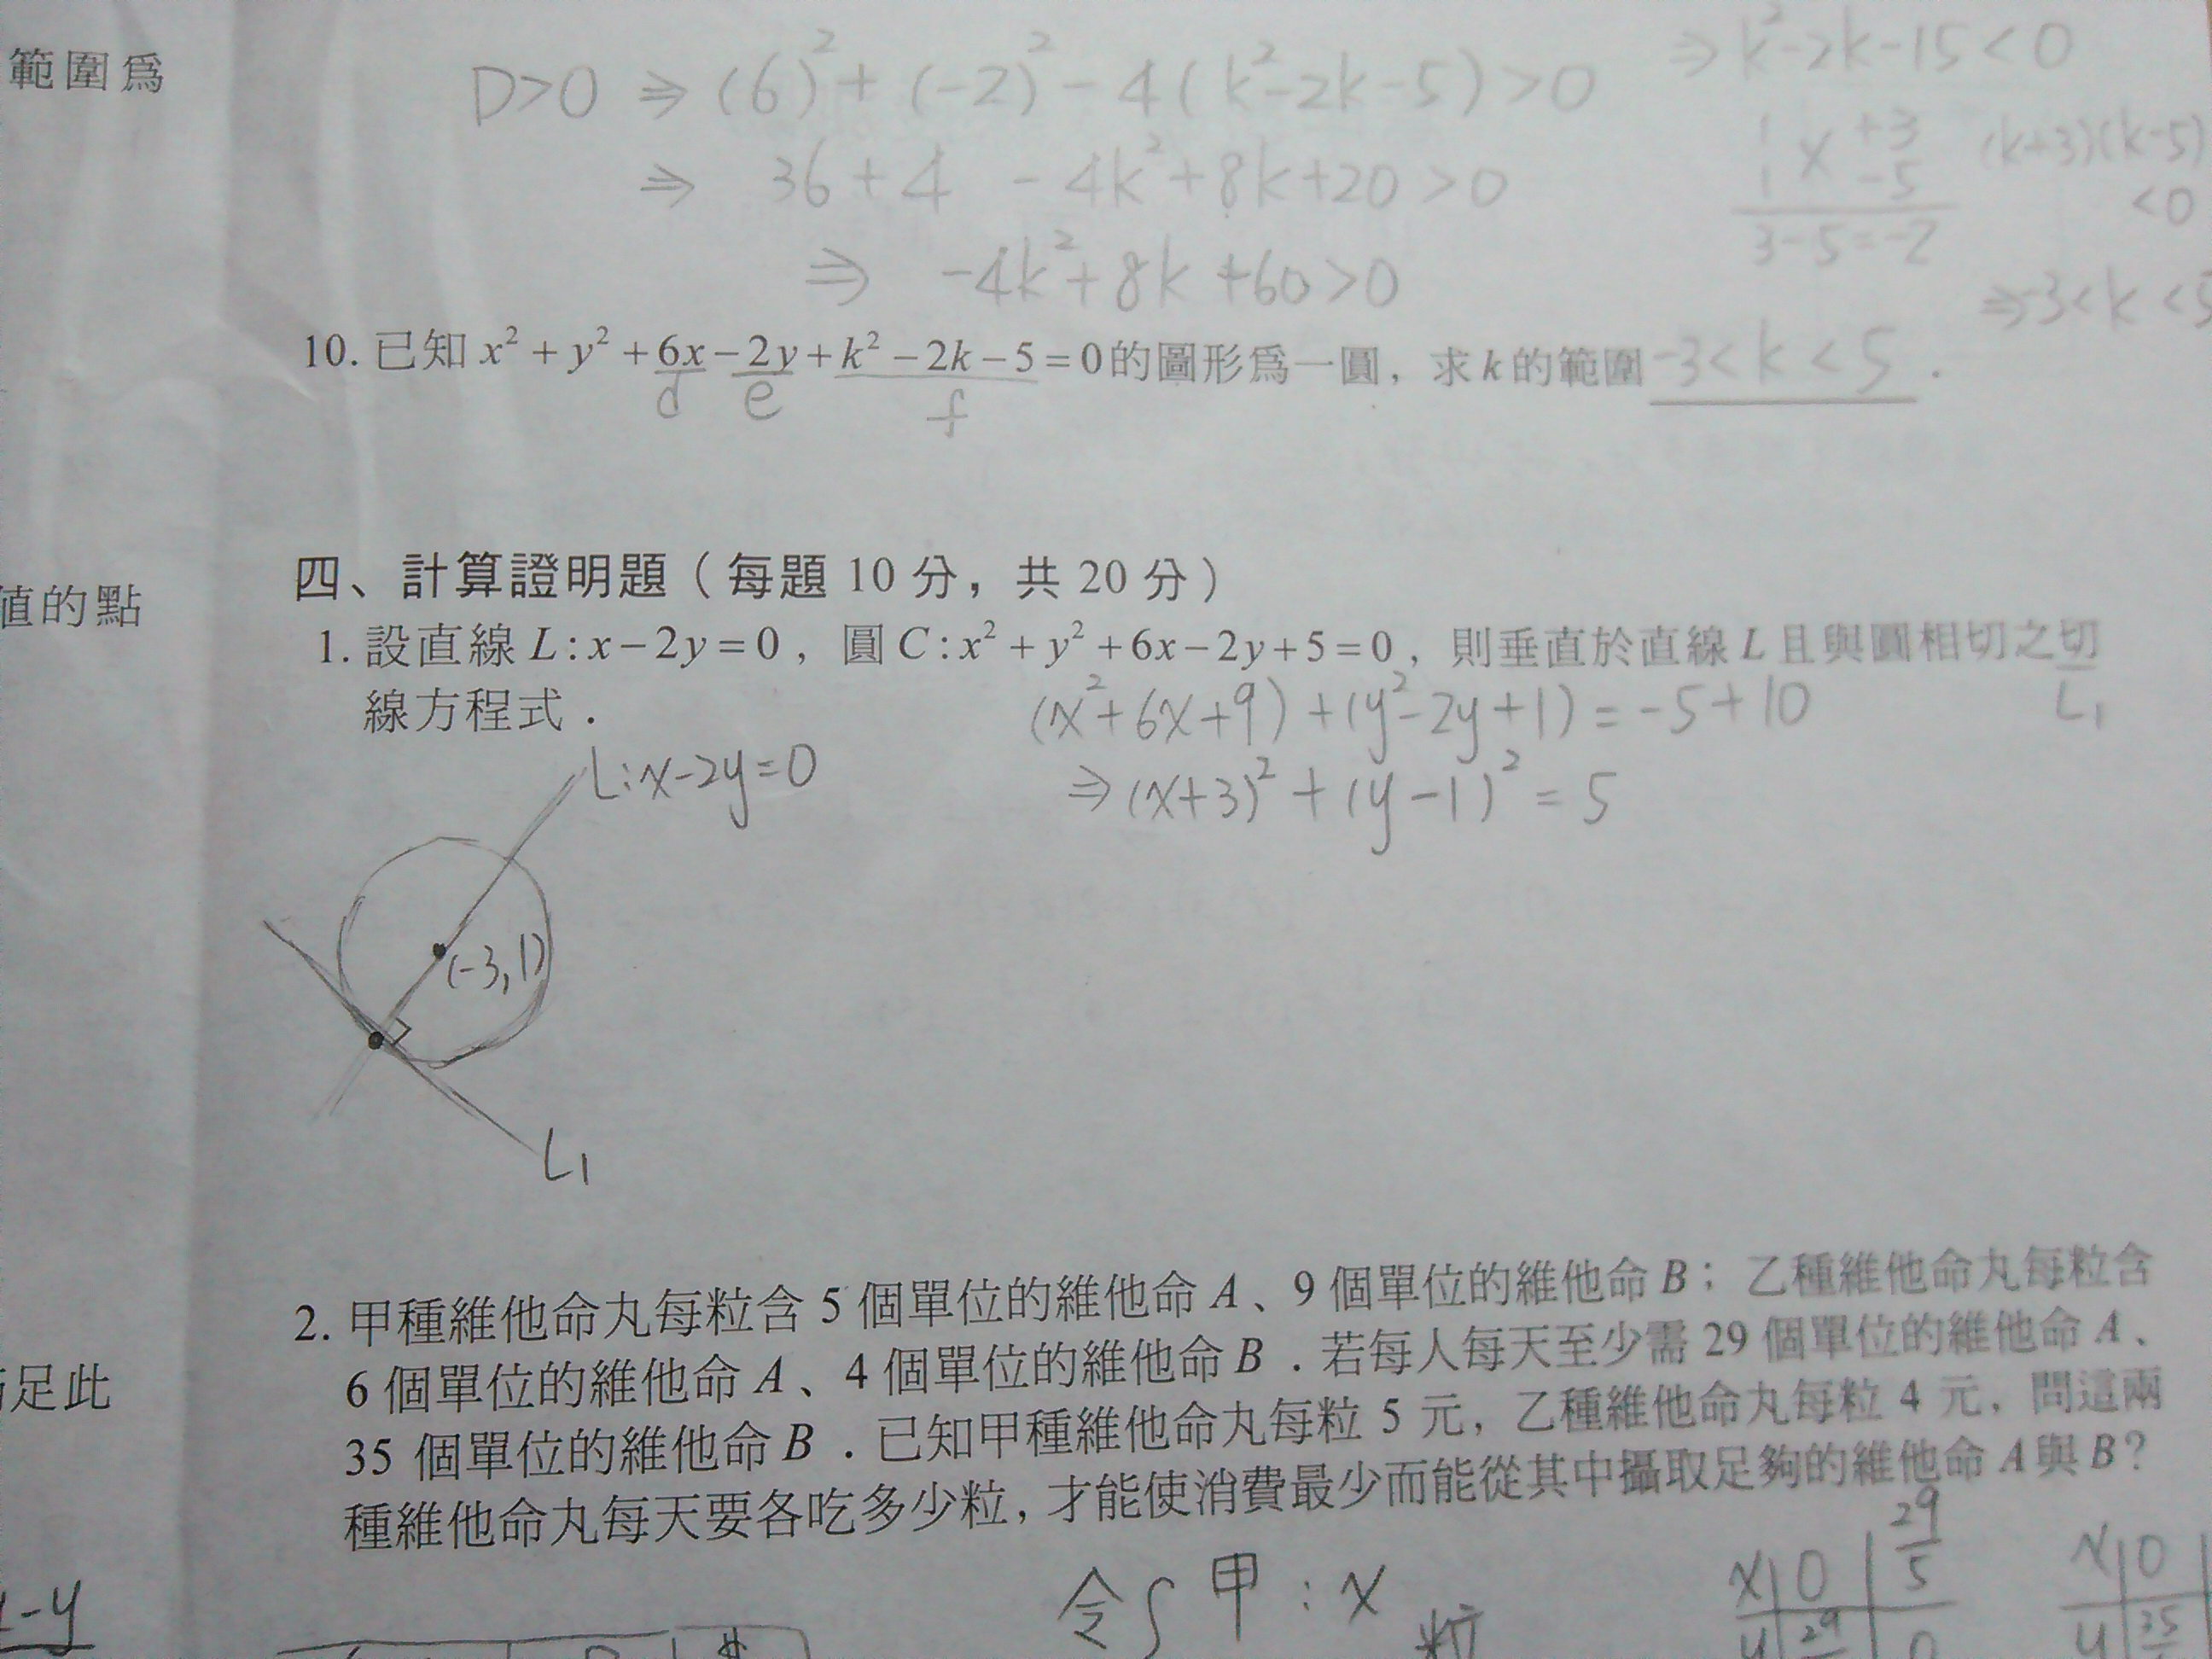 範圍為
D>0 ⇒ (6)² + (-2)² - 4(k²-2k-5)>0
⇒ 36+4 -4k²+8k+20>0
⇒ -4k²+8k+60>0
⇒ k²-2k-15<0
1 +3
1 × -5
3-5=-2
(k+3)(k-5)
<0
⇒-3<k<5
10. 已知 x² + y² + 6x - 2y + k² - 2k - 5 = 0 的圖形為一圓，求 k 的範圍 -3<k<5 .
d e f
四、計算證明題（每題 10 分，共 20 分）
值的點
1. 設直線 L : x - 2y = 0 ，圓 C : x² + y² + 6x - 2y + 5 = 0 ，則垂直於直線 L 且與圓相切之切
線方程式．
L₁
(x²+6x+9)+(y²-2y+1)=-5+10
⇒(x+3)²+(y-1)²=5
L:x-2y=0
(-3,1)
L₁
2. 甲種維他命丸每粒含 5 個單位的維他命 A 、9 個單位的維他命 B；乙種維他命丸每粒含
6 個單位的維他命 A 、4 個單位的維他命 B ．若每人每天至少需 29 個單位的維他命 A 、
足此
35 個單位的維他命 B ．已知甲種維他命丸每粒 5 元，乙種維他命丸每粒 4 元，問這兩
種維他命丸每天要各吃多少粒，才能使消費最少而能從其中攝取足夠的維他命 A 與 B？
-y
令{甲:x 粒
x 0 29/5
y 29 0
x 0
y 35